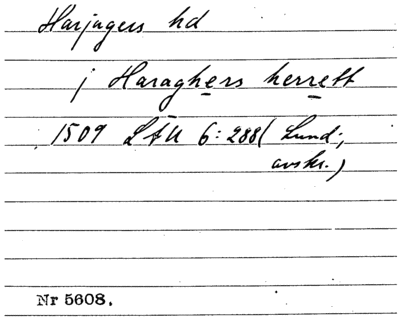 Harjagers hd
j Haraghers herrett
1509 LÄU 6:288 (Lund;
avskr.)
Nr 5608.